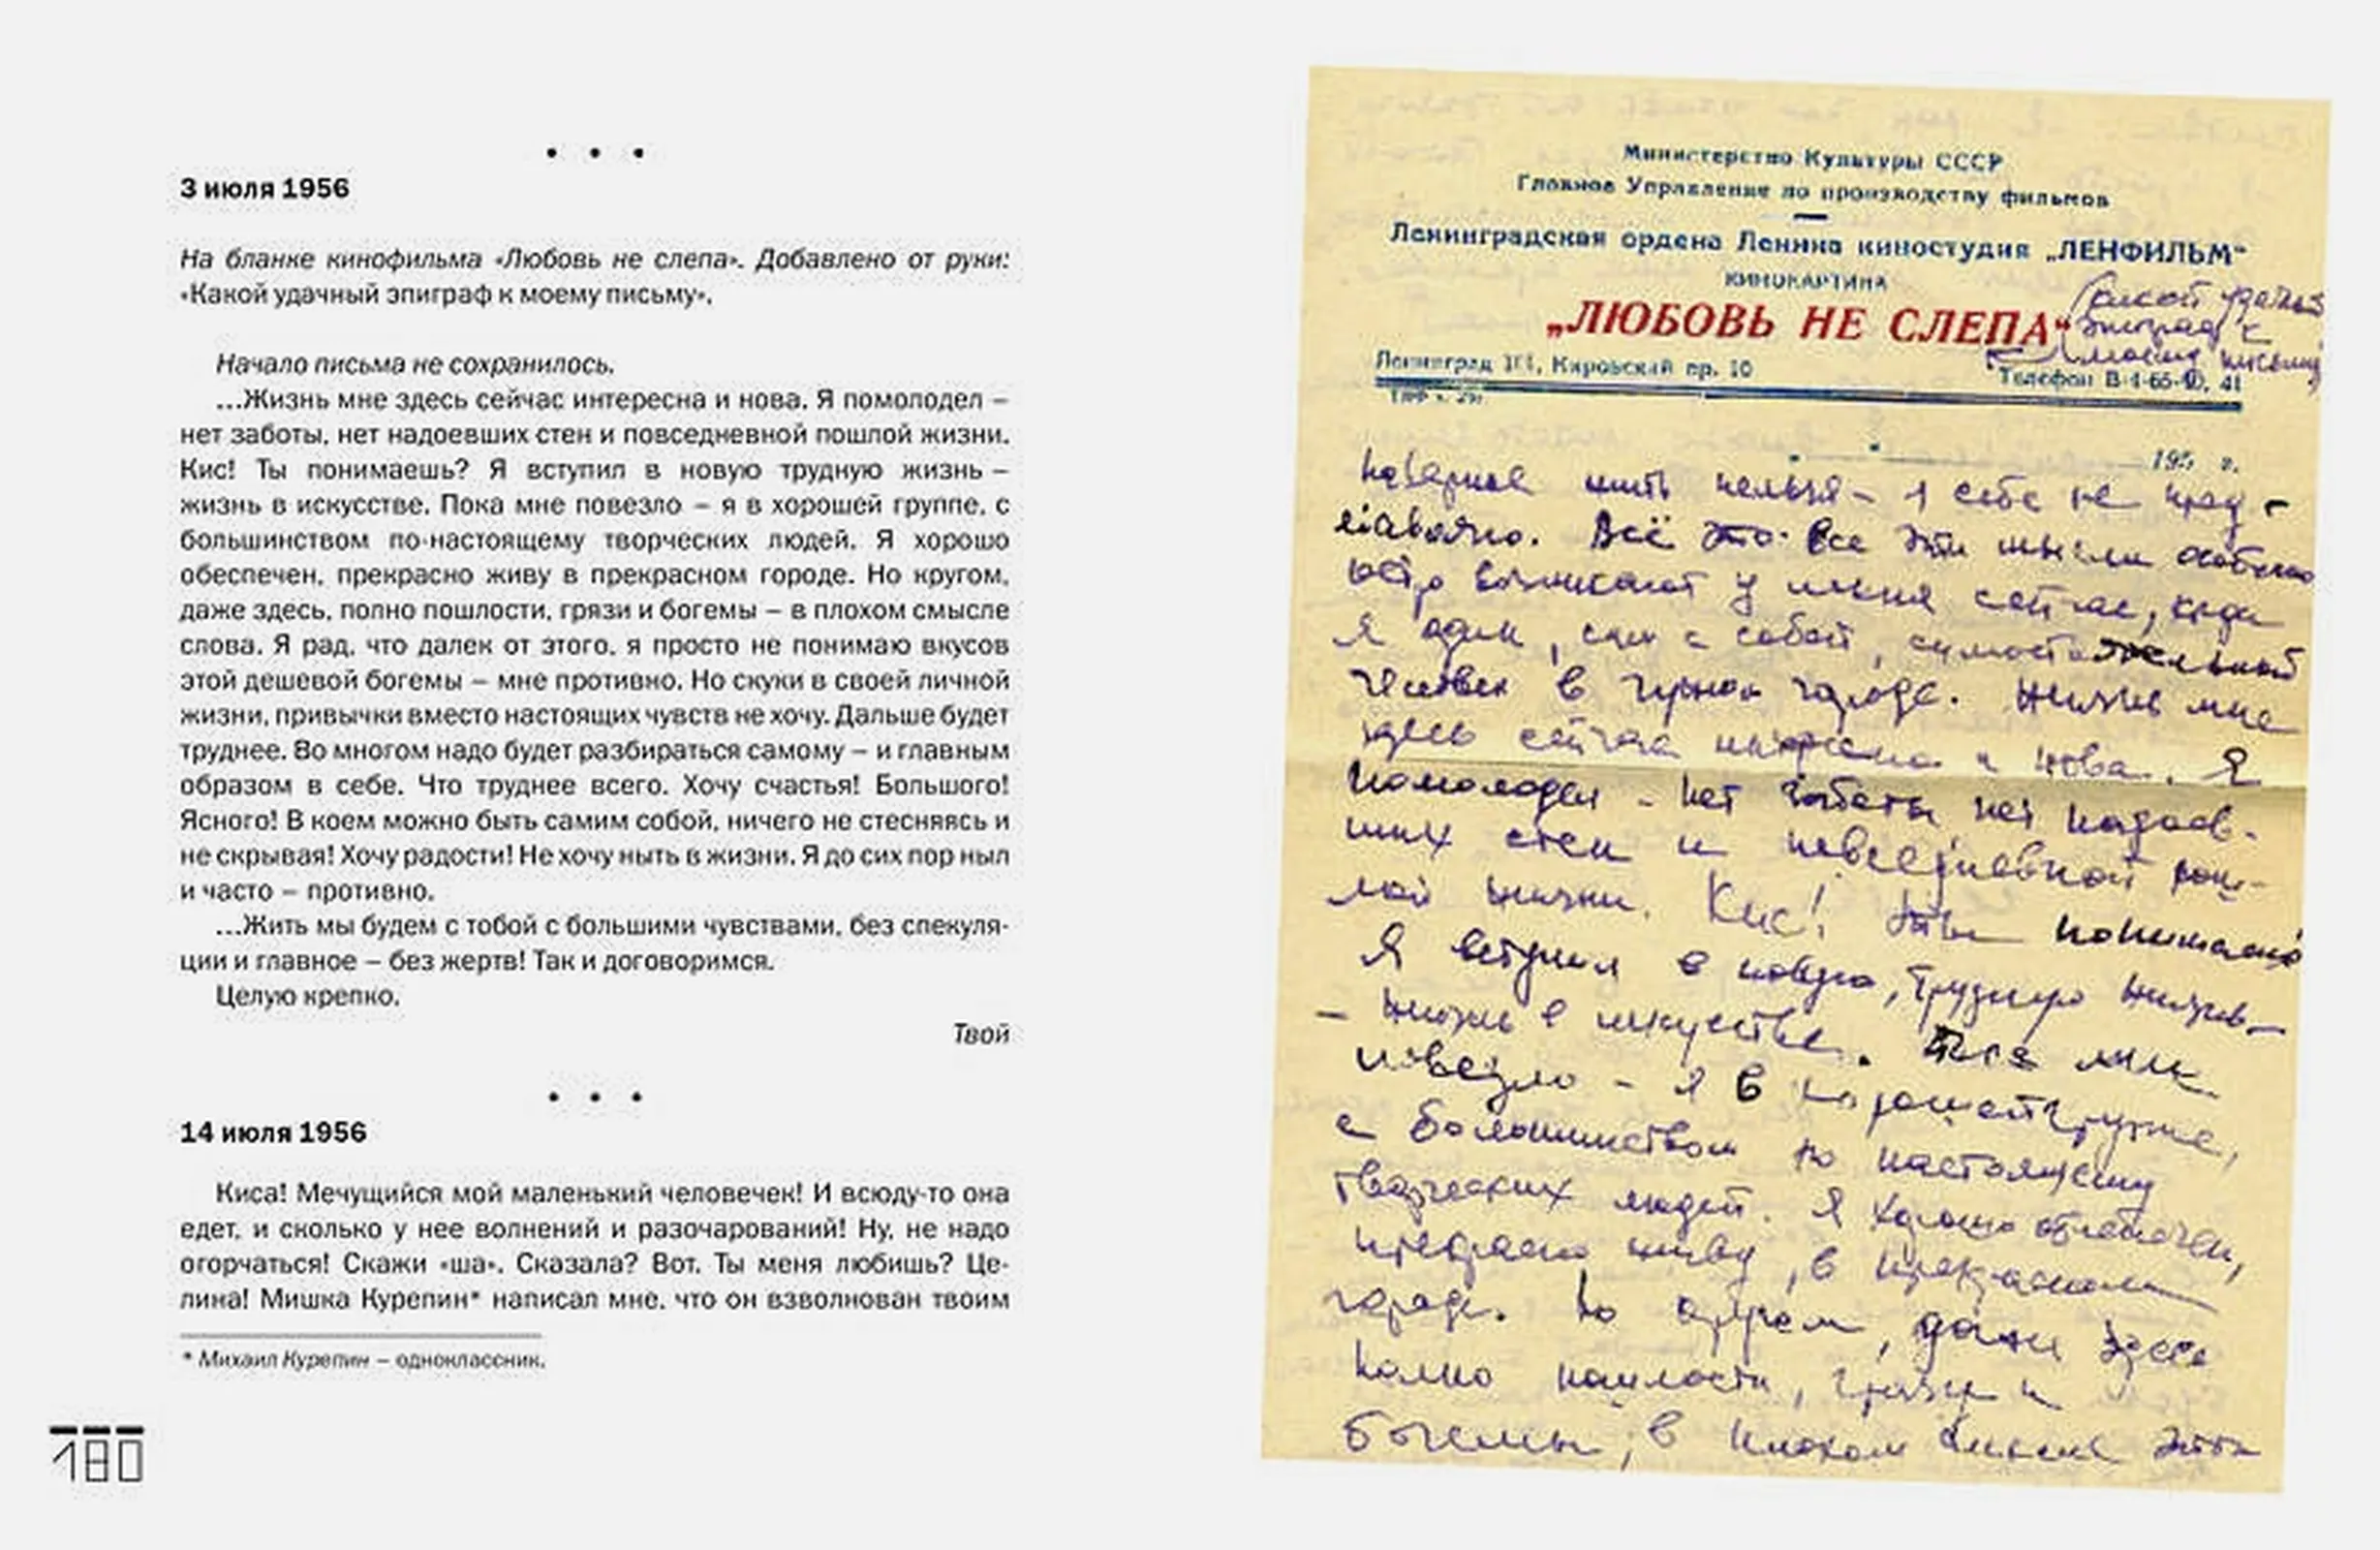 • • •
3 июля 1956
На бланке кинофильма «Любовь не слепа». Добавлено от руки:
«Какой удачный эпиграф к моему письму».
Начало письма не сохранилось.
...Жизнь мне здесь сейчас интересна и нова. Я помолодел –
нет заботы, нет надоевших стен и повседневной пошлой жизни.
Кис! Ты понимаешь? Я вступил в новую трудную жизнь –
жизнь в искусстве. Пока мне повезло – я в хорошей группе, с
большинством по-настоящему творческих людей. Я хорошо
обеспечен, прекрасно живу в прекрасном городе. Но кругом,
даже здесь, полно пошлости, грязи и богемы – в плохом смысле
слова. Я рад, что далек от этого, я просто не понимаю вкусов
этой дешевой богемы – мне противно. Но скуки в своей личной
жизни, привычки вместо настоящих чувств не хочу. Дальше будет
труднее. Во многом надо будет разбираться самому – и главным
образом в себе. Что труднее всего. Хочу счастья! Большого!
Ясного! В коем можно быть самим собой, ничего не стесняясь и
не скрывая! Хочу радости! Не хочу ныть в жизни. Я до сих пор ныл
и часто – противно.
...Жить мы будем с тобой с большими чувствами, без спекуля-
ции и главное – без жертв! Так и договоримся.
Целую крепко.
Твой
• • •
14 июля 1956
Киса! Мечущийся мой маленький человечек! И всюду-то она
едет, и сколько у нее волнений и разочарований! Ну, не надо
огорчаться! Скажи «ша». Сказала? Вот. Ты меня любишь? Це-
лина! Мишка Курепин* написал мне, что он взволнован твоим
* Михаил Курепин – одноклассник.
180
Министерство Культуры СССР
Главное Управление по производству фильмов
Ленинградская ордена Ленина киностудия „ЛЕНФИЛЬМ“
КИНОКАРТИНА
„ЛЮБОВЬ НЕ СЛЕПА“
Какой удачный
эпиграф к
моему письму
Ленинград, Кировский пр. 10
Телефон В-4-65-, 41
195 г.
наверное жить нельзя – я себе не пред-
ставляю. Всё это. Все эти мысли особенно
остро возникают у меня сейчас, когда
я один, сам с собой, самостоятельный
человек в чужом городе. Жизнь мне
здесь сейчас интересна и нова. Я
помолодел – нет заботы, нет надоев-
ших стен и повседневной пош-
лой жизни. Кис! Ты понимаешь
Я вступил в новую, трудную жизнь –
– жизнь в искусстве. Пока мне
повезло – я в хорошей группе,
с большинством по настоящему
творческих людей. Я хорошо обеспечен,
прекрасно живу, в прекрасном
городе. Но кругом, даже здесь
полно пошлости, грязи и
богемы, в плохом смысле этого